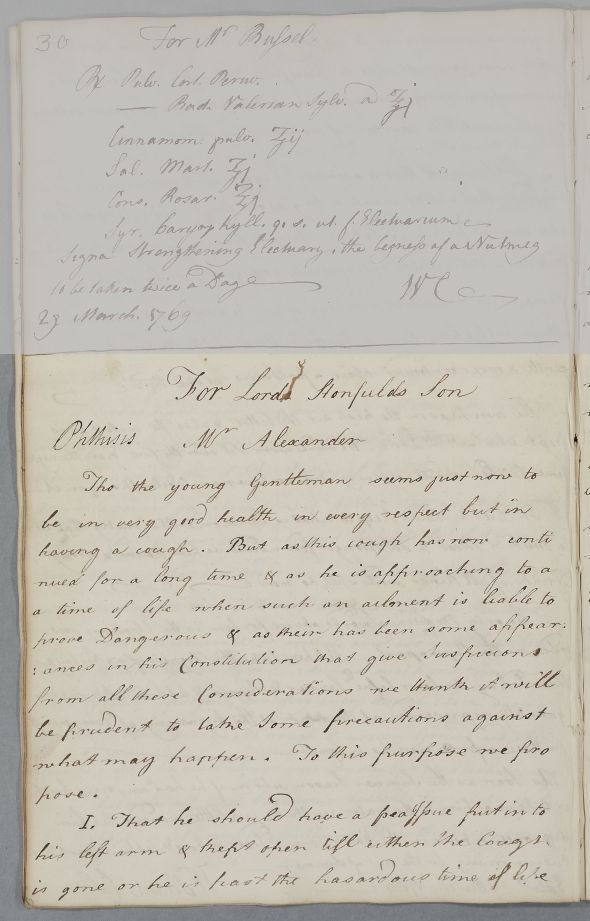 30 For Mr Bussel.
Rx Pulv. Cort. Peruv.
— Rad. Valerian Sylv. a ℥j
Cinnamom: pulv. ʒij
Sal. Mart. ʒj
Cons. Rosar. ℥j
Syr. Caryophyll. q. s. ut. f. Electuarium
Signa Strengthening Electuary, the bigness of a Nutmeg
to be taken twice a Day
WC
23 March. 1769
For Lord Stonfulds Son
Phthisis Mr Alexander
Tho the young Gentleman seems just now to
be in very good health in every respect but in
having a cough. But as this cough has now conti
nued for a long time & as he is approaching to a
a time of life when such an ailment is liable to
prove Dangerous & as their has been some appear:
:ances in his Constitution that give Suspicions
from all these Considerations we think it will
be prudent to take some precautions against
what may happen. To this purpose we pro
pose.
I. That he should have a pea Issue put into
his left arm & kept open till either the Cough
is gone or he is past the hasardous time of life